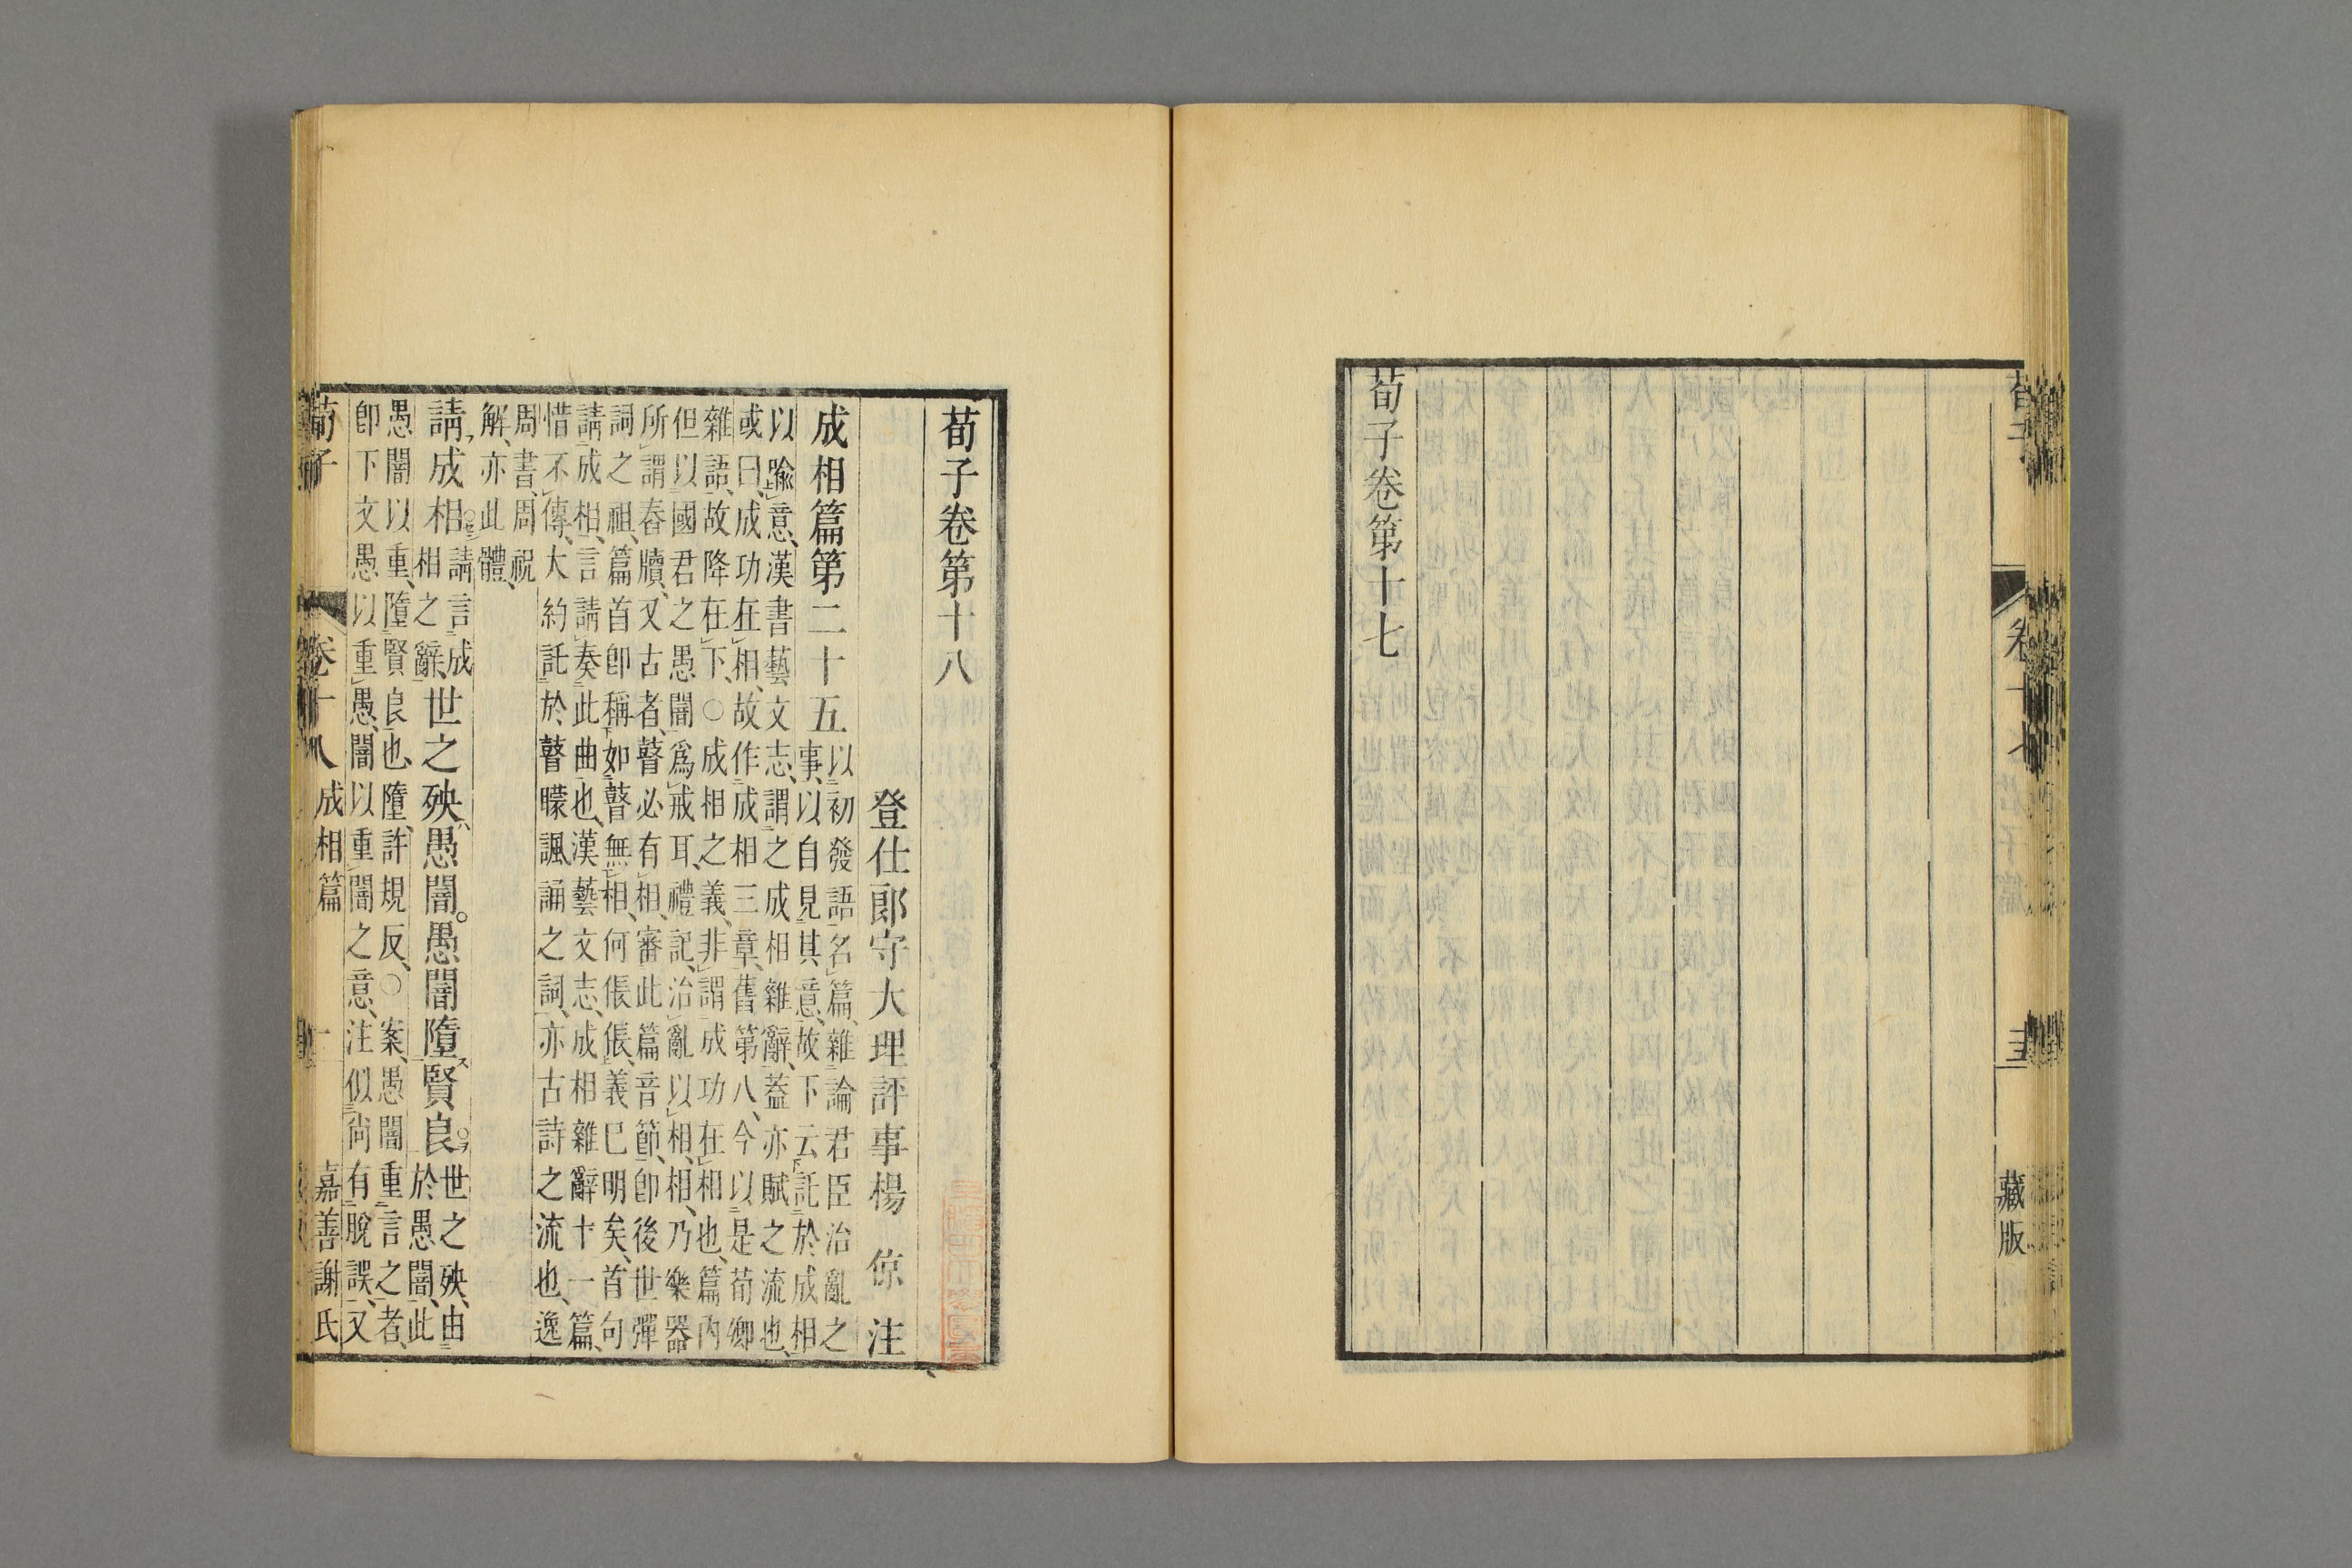 荀子卷第十七
藏版
荀子卷第十八
登仕郎守大理評事楊倞注
成相篇第二十五
以初發語名篇、雜論君臣治亂之
事、以自見其意、故下云託於成相
以喻意、漢書藝文志、謂之成相雜辭、蓋亦賦之流也、
或曰、成功在相、故作成相三章、舊第八、今以是荀卿
雜語、故降在下、○成相之義、非謂成功在相也、篇內
但以國君之愚闇爲戒耳、禮記、治亂以相、相、乃樂器
所謂舂牘、又古者、瞽必有相、審此篇音節、即後世彈
詞之祖、篇首即稱如瞽無相、何倀倀、義已明矣、首句
請成相、言請奏此曲也、漢藝文志、成相雜辭十一篇、
惜不傳、大約託於瞽矇諷誦之詞、亦古詩之流也、逸
周書、周祝
解、亦此體、
請成相○請言成相之辭、世之殃、愚闇。愚闇墮賢良○世之殃、由於愚闇、此
愚闇以重、墮賢良也、墮、許規反、○案、愚闇重言之者、
即下文愚以重愚、闇以重闇之意、注似尚有脫誤、又
荀子 卷十八 成相篇 一 嘉善謝氏